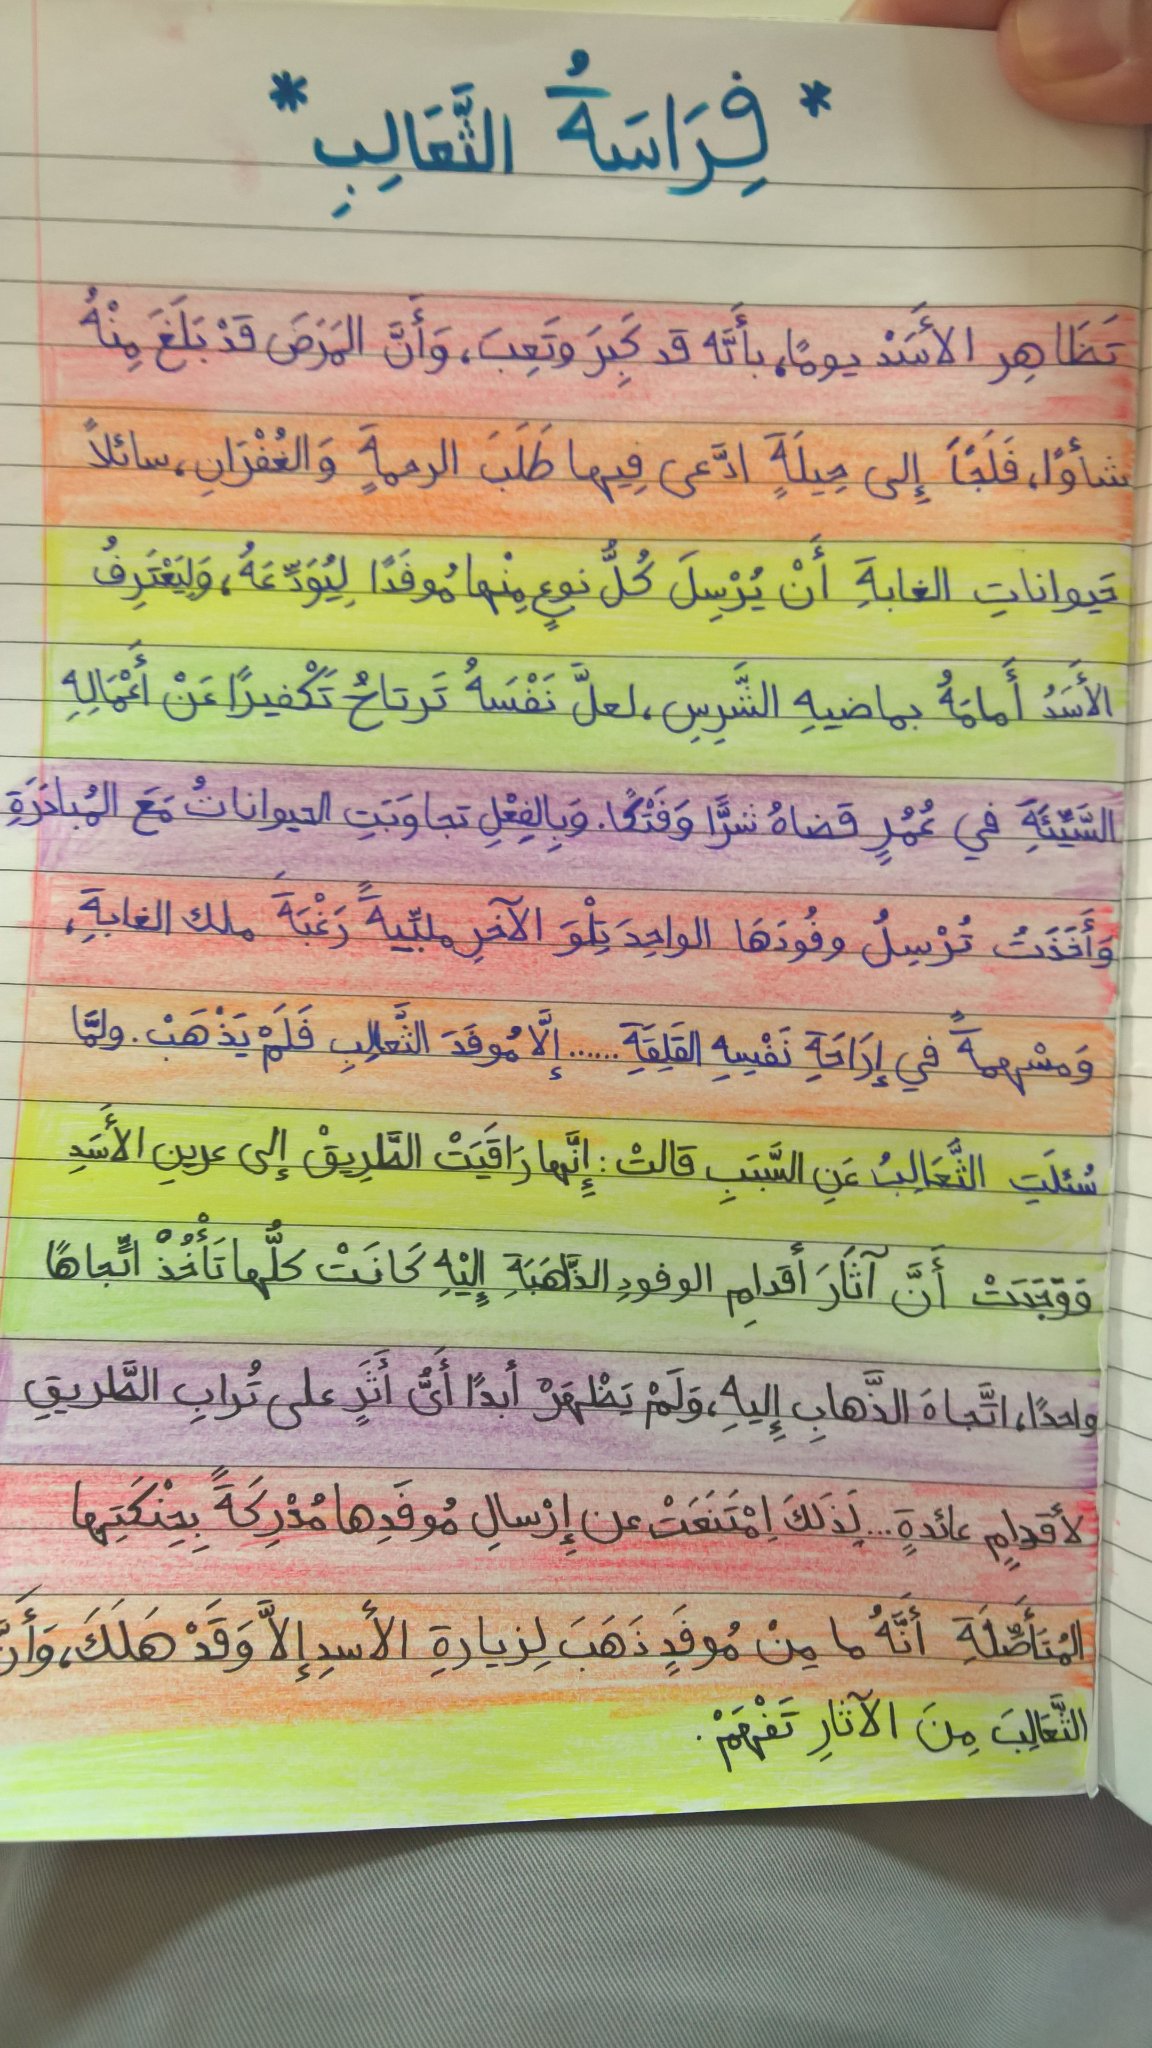 * فِرَاسَةُ الثَّعَالِبِ *
تَظَاهِر الأَسَدْ يومًا، بأَنَّه قد كَبِرَ وتَعِبَ، وَأَنَّ المَرَضَ قَدْ بَلَغَ مِنْهُ
شأوًا، فَلَجَأَ إِلى حِيلَةٍ ادَّعى فِيها طَلَبَ الرحمةِ وَالغُفْرَانِ، سائلاً
حَيواناتِ الغابةِ أَنْ يُرْسِلَ كُلُّ نوعٍ مِنْها مُوفَدًا لِيُوَدِّعَهُ، وَلِيَعْتَرِفُ
الأَسَدُ أَمامَهُ بماضيهِ الشَّرِسِ، لعلَّ نَفْسَهُ تَرتاحُ تَكْفيرًا عَنْ أَعْمَالِهِ
السَّيِّئَةِ في عُمُرٍ قضاهُ شرًّا وَفَتْكًا. وَبِالفِعْلِ تجاوَبَتِ الحيواناتُ مَعَ المُبادَرَةِ
وَأَخَذَتْ تُرْسِلُ وفُودَهَا الواحِدَ تِلْوَ الآخرِ ملبِّيةً رَغْبَةَ ملك الغابةِ،
وَمسْهمةً في إِرَاحَةِ نَفْسِهِ القَلِقَةِ ...... إِلَّا مُوفَدَ الثَّعالبِ فَلَمْ يَذْهَبْ. ولمَّا
سُئلَتِ الثَّعَالِبُ عَنِ السَّبَبِ قالتْ: إِنَّها رَاقَبَتْ الطَّرِيقْ إلى عرينِ الأَسَدِ
فَوَجَدَتْ أَنَّ آثَارَ أَقدامِ الوفودِ الذَّاهَبَةِ إِلَيْهِ كَانَتْ كلُّها تَأْخُذْ اتِّجاهًا
واحدًا، اتَّجاهَ الذَّهابِ إِليهِ، وَلَمْ يَظْهَرْ أبدًا أَيُّ أَثَرٍ على تُرابِ الطَّريقِ
لأقدامٍ عائدةٍ... لِذَلكَ اِمْتَنَعَتْ عن إِرْسالِ مُوفَدِها مُدْرِكَةً بِحِنْكَتِها
المُتَأَصِّلَةِ أَنَّهُ ما مِنْ مُوفَدٍ ذَهَبَ لِزيارةِ الأسدِ إلاَّ وَقَدْ هَلَكَ، وَأَنَّ
الثَّعَالِبَ مِنَ الآثارِ تَفْهَمْ.